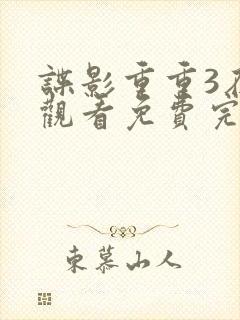 諜影重重3
觀看免費完
東慕山人